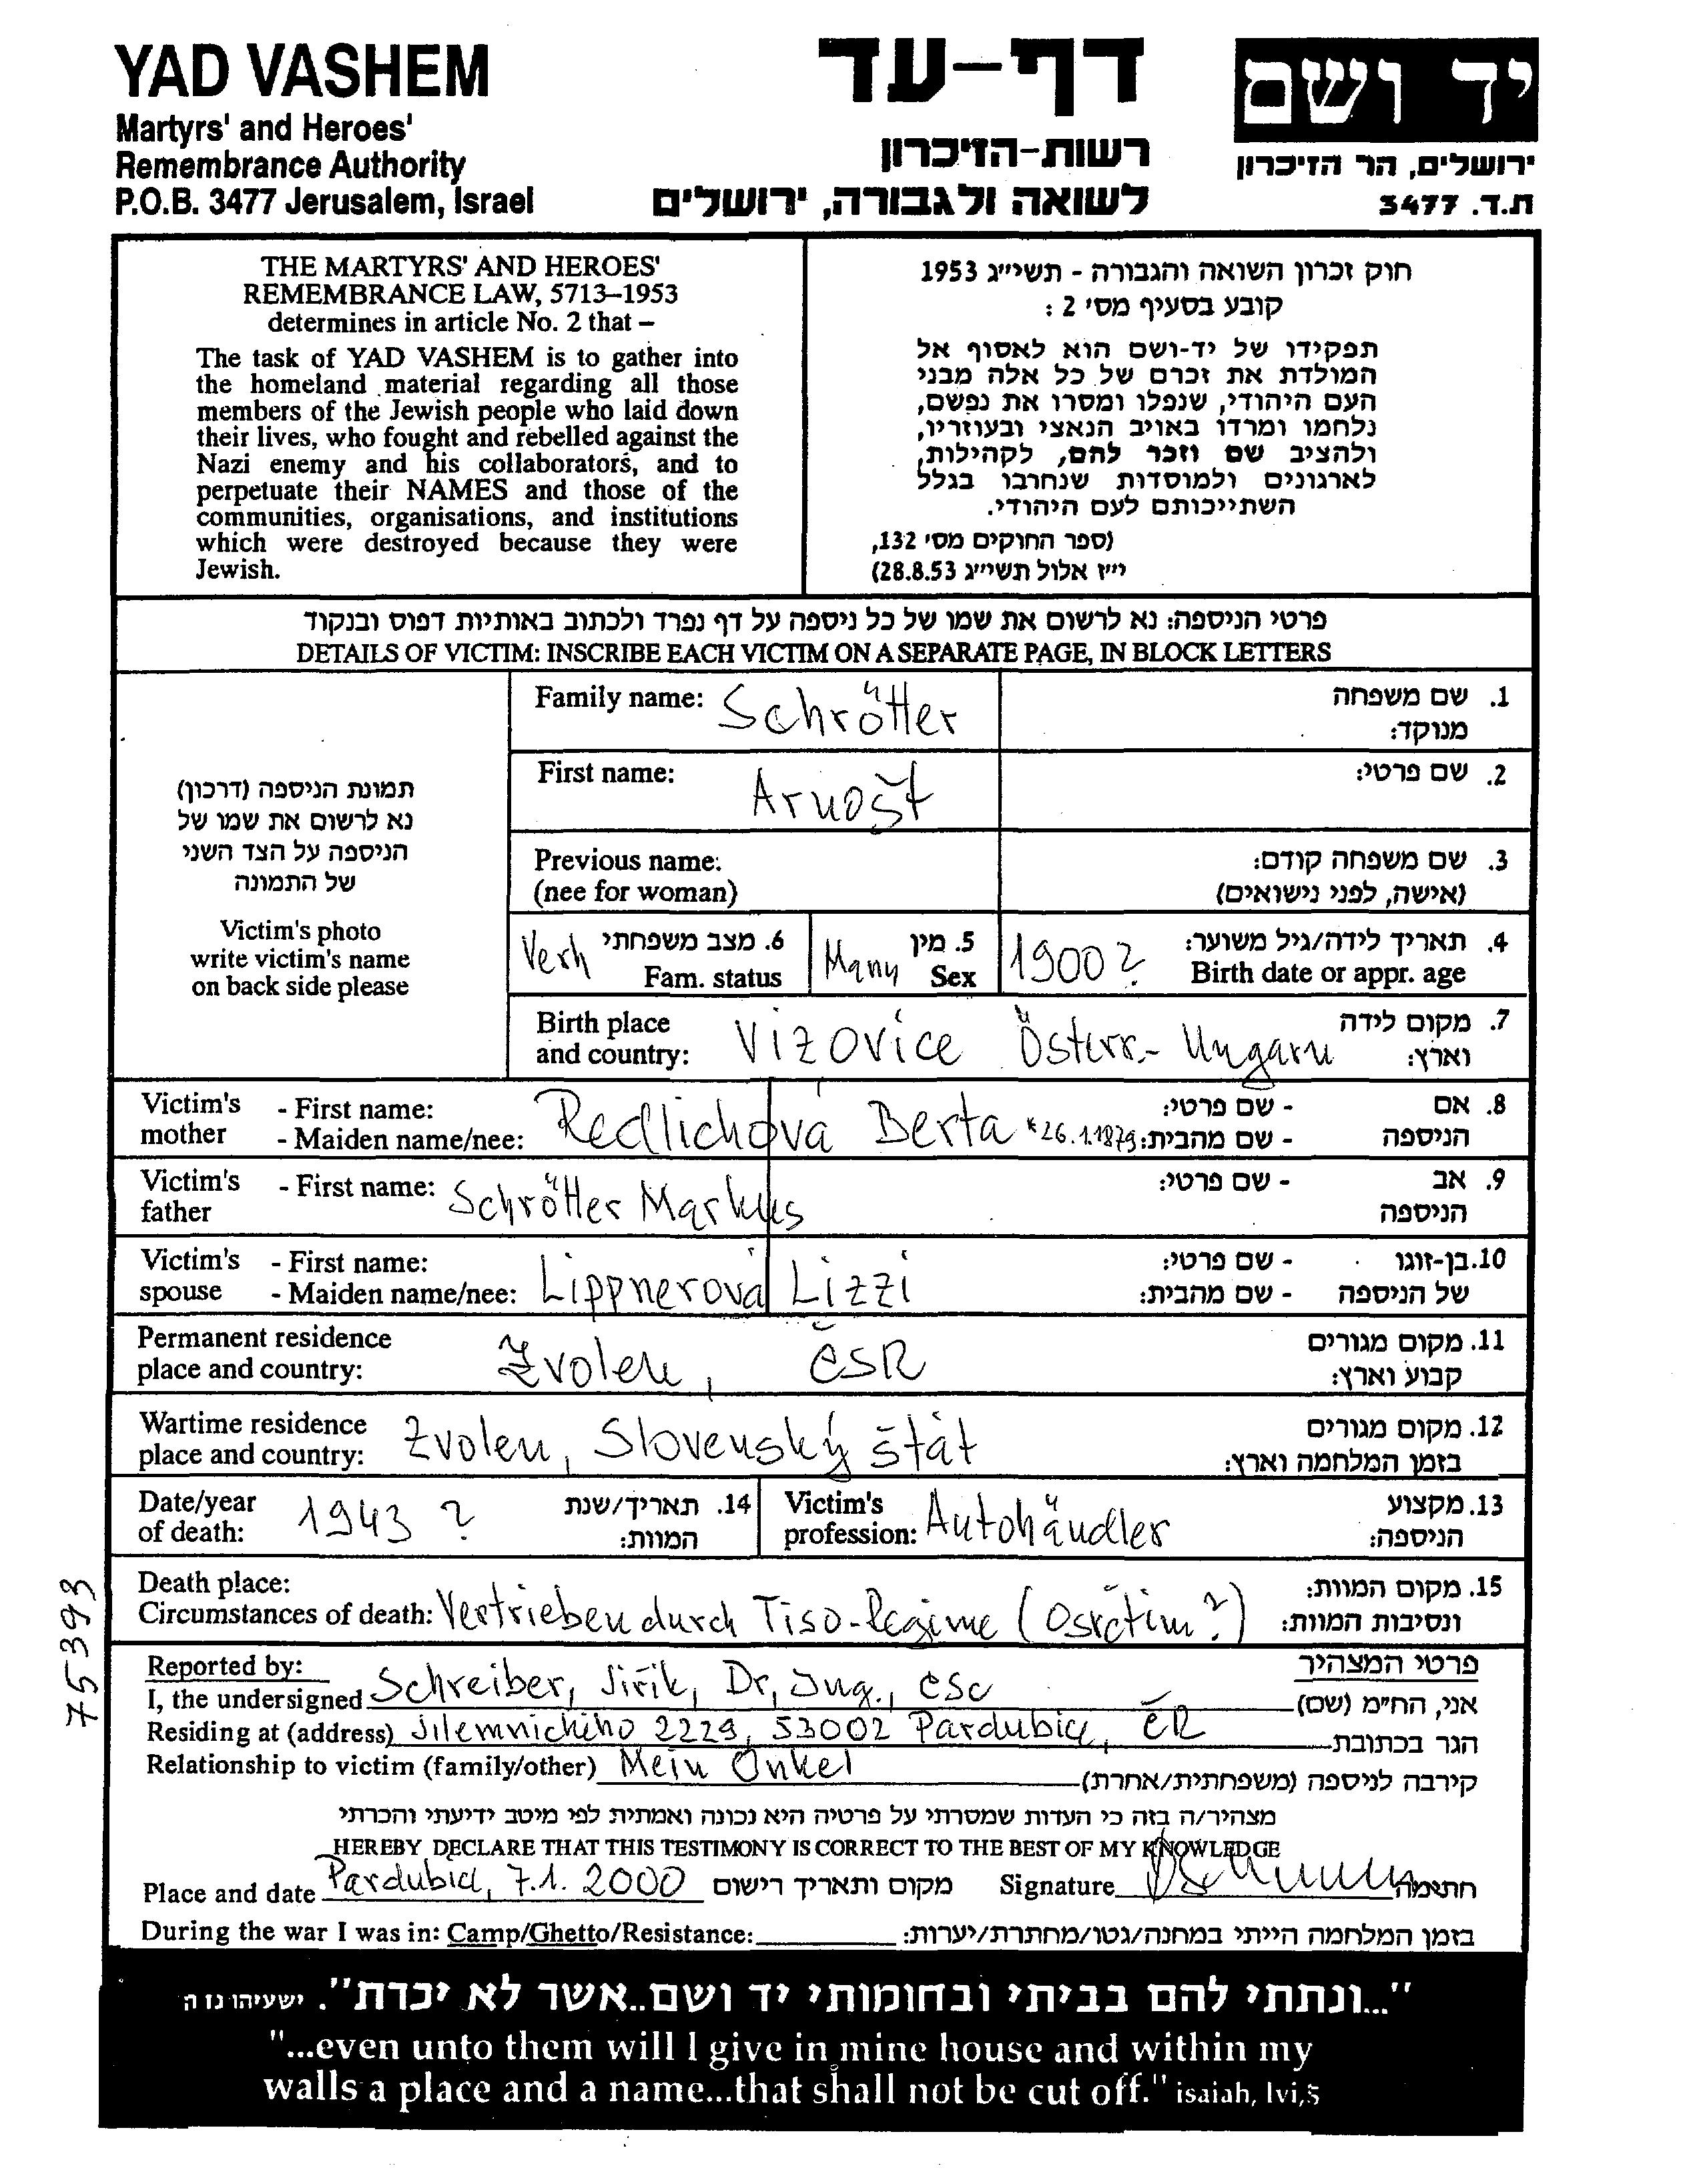 YAD VASHEM
Martyrs' and Heroes'
Remembrance Authority
P.O.B. 3477 Jerusalem, Israel
דף-עד
רשות-הזיכרון
לשואה ולגבורה, ירושלים
יד ושם
ירושלים, הר הזיכרון
ת.ד. 3477
THE MARTYRS' AND HEROES'
REMEMBRANCE LAW, 5713–1953
determines in article No. 2 that –
The task of YAD VASHEM is to gather into
the homeland material regarding all those
members of the Jewish people who laid down
their lives, who fought and rebelled against the
Nazi enemy and his collaborators, and to
perpetuate their NAMES and those of the
communities, organisations, and institutions
which were destroyed because they were
Jewish.
חוק זכרון השואה והגבורה - תשי״ג 1953
קובע בסעיף מס׳ 2 :
תפקידו של יד-ושם הוא לאסוף אל
המולדת את זכרם של כל אלה מבני
העם היהודי, שנפלו ומסרו את נפשם,
נלחמו ומרדו באויב הנאצי ובעוזריו,
ולהציב שם וזכר להם, לקהילות,
לארגונים ולמוסדות שנחרבו בגלל
השתייכותם לעם היהודי.
(ספר החוקים מס׳ 132,
י״ז אלול תשי״ג 28.8.53)
פרטי הניספה: נא לרשום את שמו של כל ניספה על דף נפרד ולכתוב באותיות דפוס ובנקוד
DETAILS OF VICTIM: INSCRIBE EACH VICTIM ON A SEPARATE PAGE, IN BLOCK LETTERS
תמונת הניספה (דרכון)
נא לרשום את שמו של
הניספה על הצד השני
של התמונה
Victim's photo
write victim's name
on back side please
Family name: Schrötter 1. שם משפחה
מנוקד:
First name: Arnošt 2. שם פרטי:
Previous name: 3. שם משפחה קודם:
(nee for woman) (אישה, לפני נישואים)
Verh 6. מצב משפחתי Fam. status
Mann 5. מין Sex
1900? 4. תאריך לידה/גיל משוער:
Birth date or appr. age
Birth place 7. מקום לידה
and country: Vizovice Österr.- Ungarn וארץ:
Victim's - First name: 8. אם - שם פרטי:
mother - Maiden name/nee: Redlichová Berta *26.1.1879 הניספה - שם מהבית:
Victim's - First name: Schrötter Markus 9. אב - שם פרטי:
father הניספה
Victim's - First name: 10. בן-זוגו - שם פרטי:
spouse - Maiden name/nee: Lippnerová Lizzi של הניספה - שם מהבית:
Permanent residence 11. מקום מגורים
place and country: Zvolen, ČSR קבוע וארץ:
Wartime residence 12. מקום מגורים
place and country: Zvolen, Slovenský štát בזמן המלחמה וארץ:
Date/year of death: 1943 ? 14. תאריך/שנת המוות:
Victim's profession: Autohändler 13. מקצוע הניספה:
Death place: 15. מקום המוות:
Circumstances of death: Vertrieben durch Tiso-Regime (Osvětim?) ונסיבות המוות:
Reported by: פרטי המצהיר
I, the undersigned Schreiber, Jiřík, Dr, Ing., CSc אני, הח״מ (שם)
Residing at (address) Jilemnického 2229, 53002 Pardubice, ČR הגר בכתובת
Relationship to victim (family/other) Mein Onkel קירבה לניספה (משפחתית/אחרת)
מצהיר/ה בזה כי העדות שמסרתי על פרטיה היא נכונה ואמתית לפי מיטב ידיעתי והכרתי
HEREBY DECLARE THAT THIS TESTIMONY IS CORRECT TO THE BEST OF MY KNOWLEDGE
Place and date Pardubice, 7.1. 2000 מקום ותאריך רישום Signature חתימה
During the war I was in: Camp/Ghetto/Resistance: בזמן המלחמה הייתי במחנה/גטו/מחתרת/יערות:
75393
"...ונתתי להם בביתי ובחומותי יד ושם..אשר לא יכרת". ישעיהו נו ה
"...even unto them will I give in mine house and within my
walls a place and a name...that shall not be cut off." isaiah, lvi,5